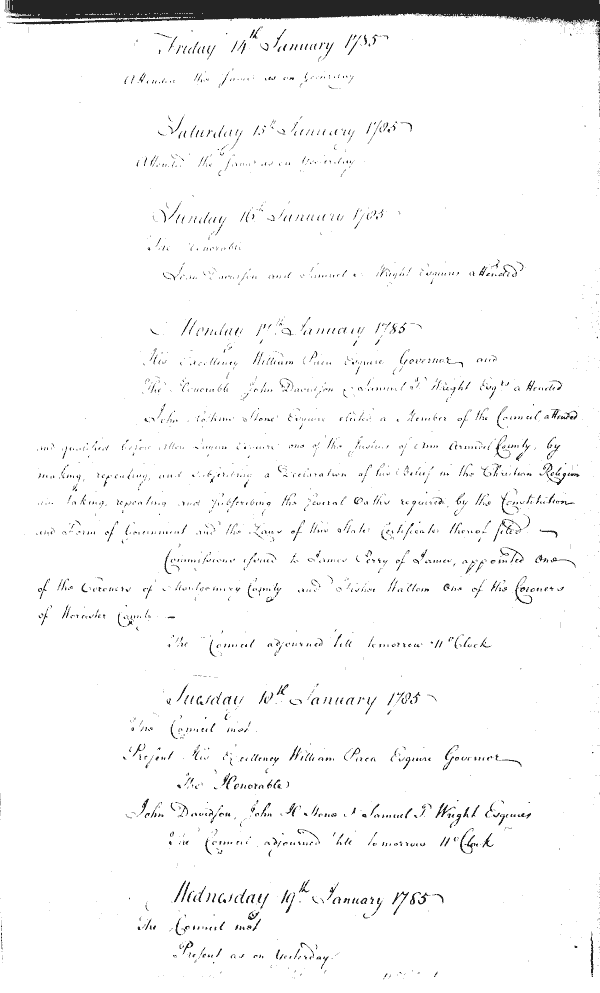 Friday 14th January 1785
Attended the same as on Yesterday
Saturday 15th January 1785
Attended the same as on Yesterday
Sunday 16th January 1785
The Honorable
John Davidson and Samuel T. Wright Esquires attended
Monday 17th January 1785
His Excellency William Paca Esquire Governor and
The Honorable John Davidson & Samuel T Wright Esqrs attended
John Hoskins Stone Esquire elected a Member of the Council attended
and qualified before Allen Quynn Esquire one of the Justices of Ann Arundel County, by
making, repeating, and subscribing a Declaration of his Belief in the Christian Religion
and taking, repeating and subscribing the several Oaths required by the Constitution
and Form of Government and the Laws of this State Certificate thereof filed —
Commissions issued to James Perry of James, appointed one
of the Coroners of Montgomery County and Fisher Walton one of the Coroners
of Worcester County —
The Council adjourned till tomorrow 11 oClock
Tuesday 18th January 1785
The Council met
Present His Excellency William Paca Esquire Governor
The Honorable
John Davidson, John H Stone & Samuel T. Wright Esquires
The Council adjourned till tomorrow 11 oClock
Wednesday 19th January 1785
The Council met
Present as on Yesterday